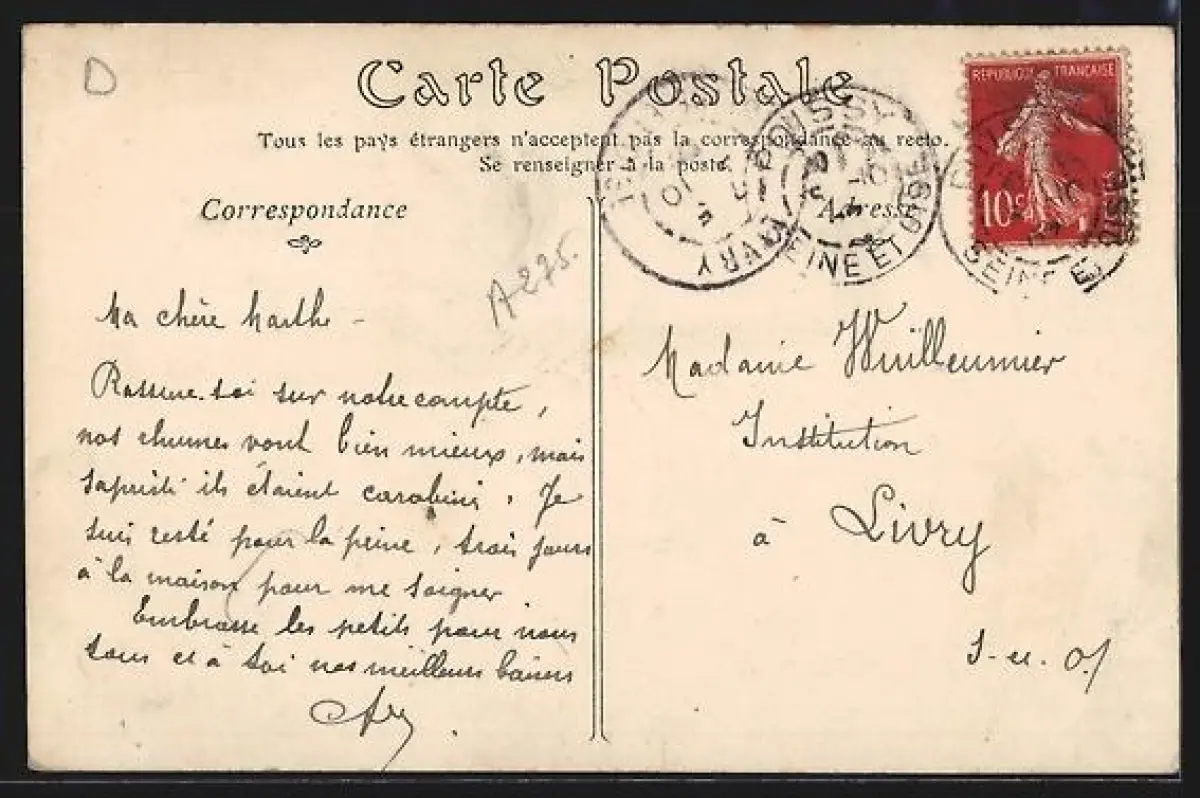 D
Carte Postale
Tous les pays étrangers n'acceptent pas la correspondance au recto.
Se renseigner à la poste.
Correspondance
Adresse
RÉPUBLIQUE FRANÇAISE
10 c
POISSY
SEINE ET OISE
LIVRY
SEINE ET OISE
A 275.
Ma chère Marthe -
Rassure-toi sur notre compte,
nos rhumes vont bien mieux, mais
sapristi ils étaient carabinés. Je
suis resté pour la peine, trois jours
à la maison pour me soigner
Embrasse les petits pour nous
tous et à toi nos meilleurs baisers
Madame Wuilleumier
Institution
à Livry
S-et-O/